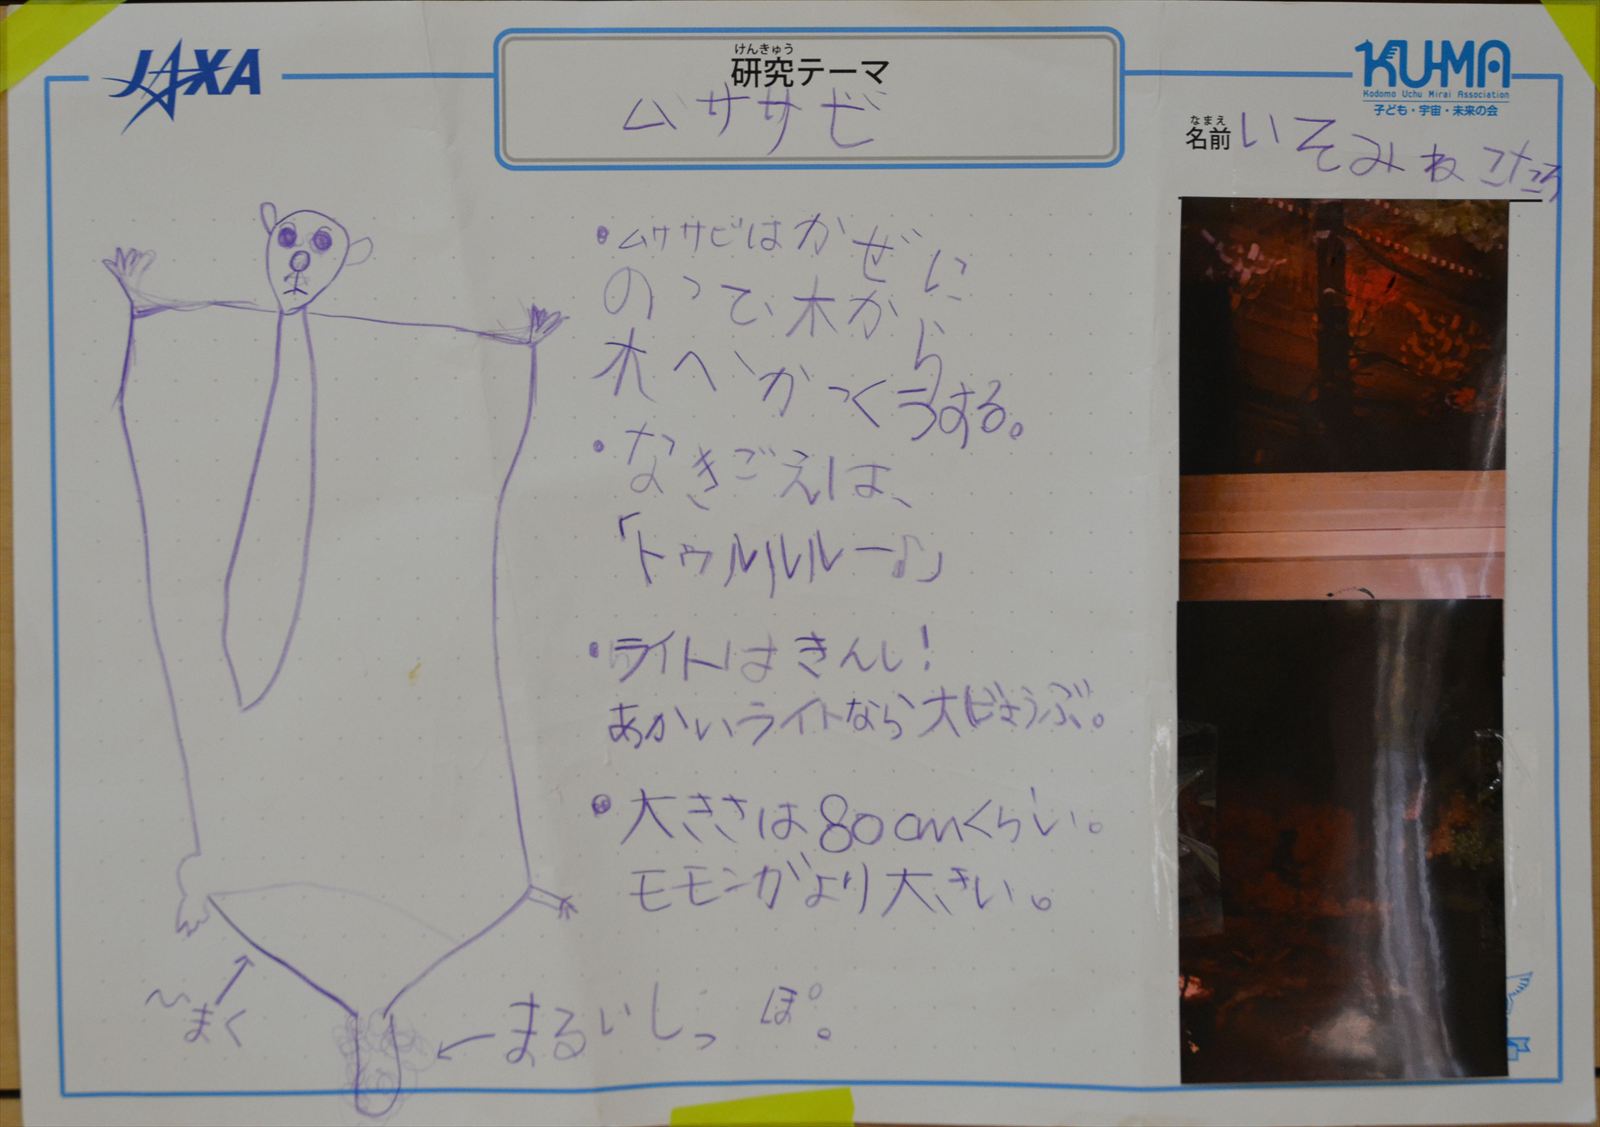 JAXA
けんきゅう
研究テーマ
ムササビ
KU-MA
Kodomo Uchu Mirai Association
子ども・宇宙・未来の会
なまえ
名前 いそみね こたろう
・ムササビはかぜに
のって、木から
木へ、かっくうする。
・なきごえは、
「トゥルルルー♪」
・ライトはきんし!
あかいライトなら大じょうぶ。
・大きさは80cmくらい。
モモンガより大きい。
まく
まるいしっぽ。